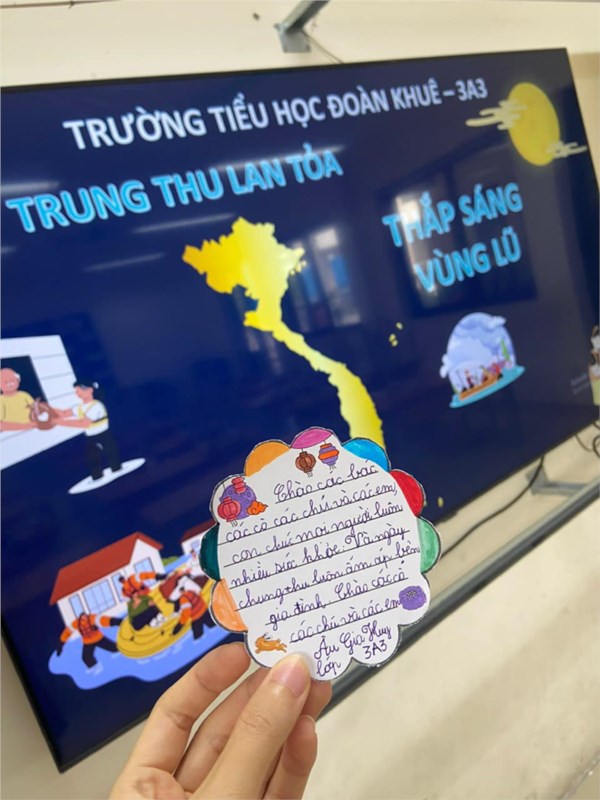 TRƯỜNG TIỂU HỌC ĐOÀN KHUÊ – 3A3
TRUNG THU LAN TỎA
THẮP SÁNG
VÙNG LŨ
Chào các bác
các cô các chú và các em,
con chúc mọi người luôn
nhiều sức khỏe. Và ngày
chung thu luôn ấm áp bên
gia đình. Chào các cô
các chú và các em
Âu Gia Huy
lớp 3A3